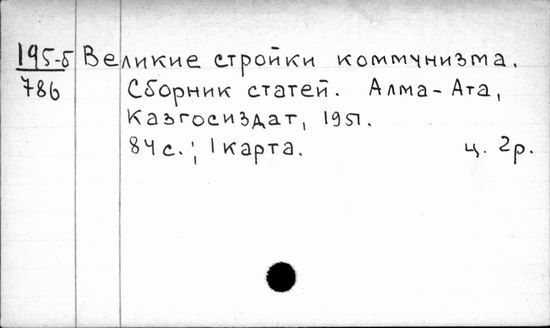 195-б Великие стройки коммунизма.
786 Сборник статей. Алма-Ата,
Казгосиздат, 1951.
84 с.; 1 карта. ц. 2р.